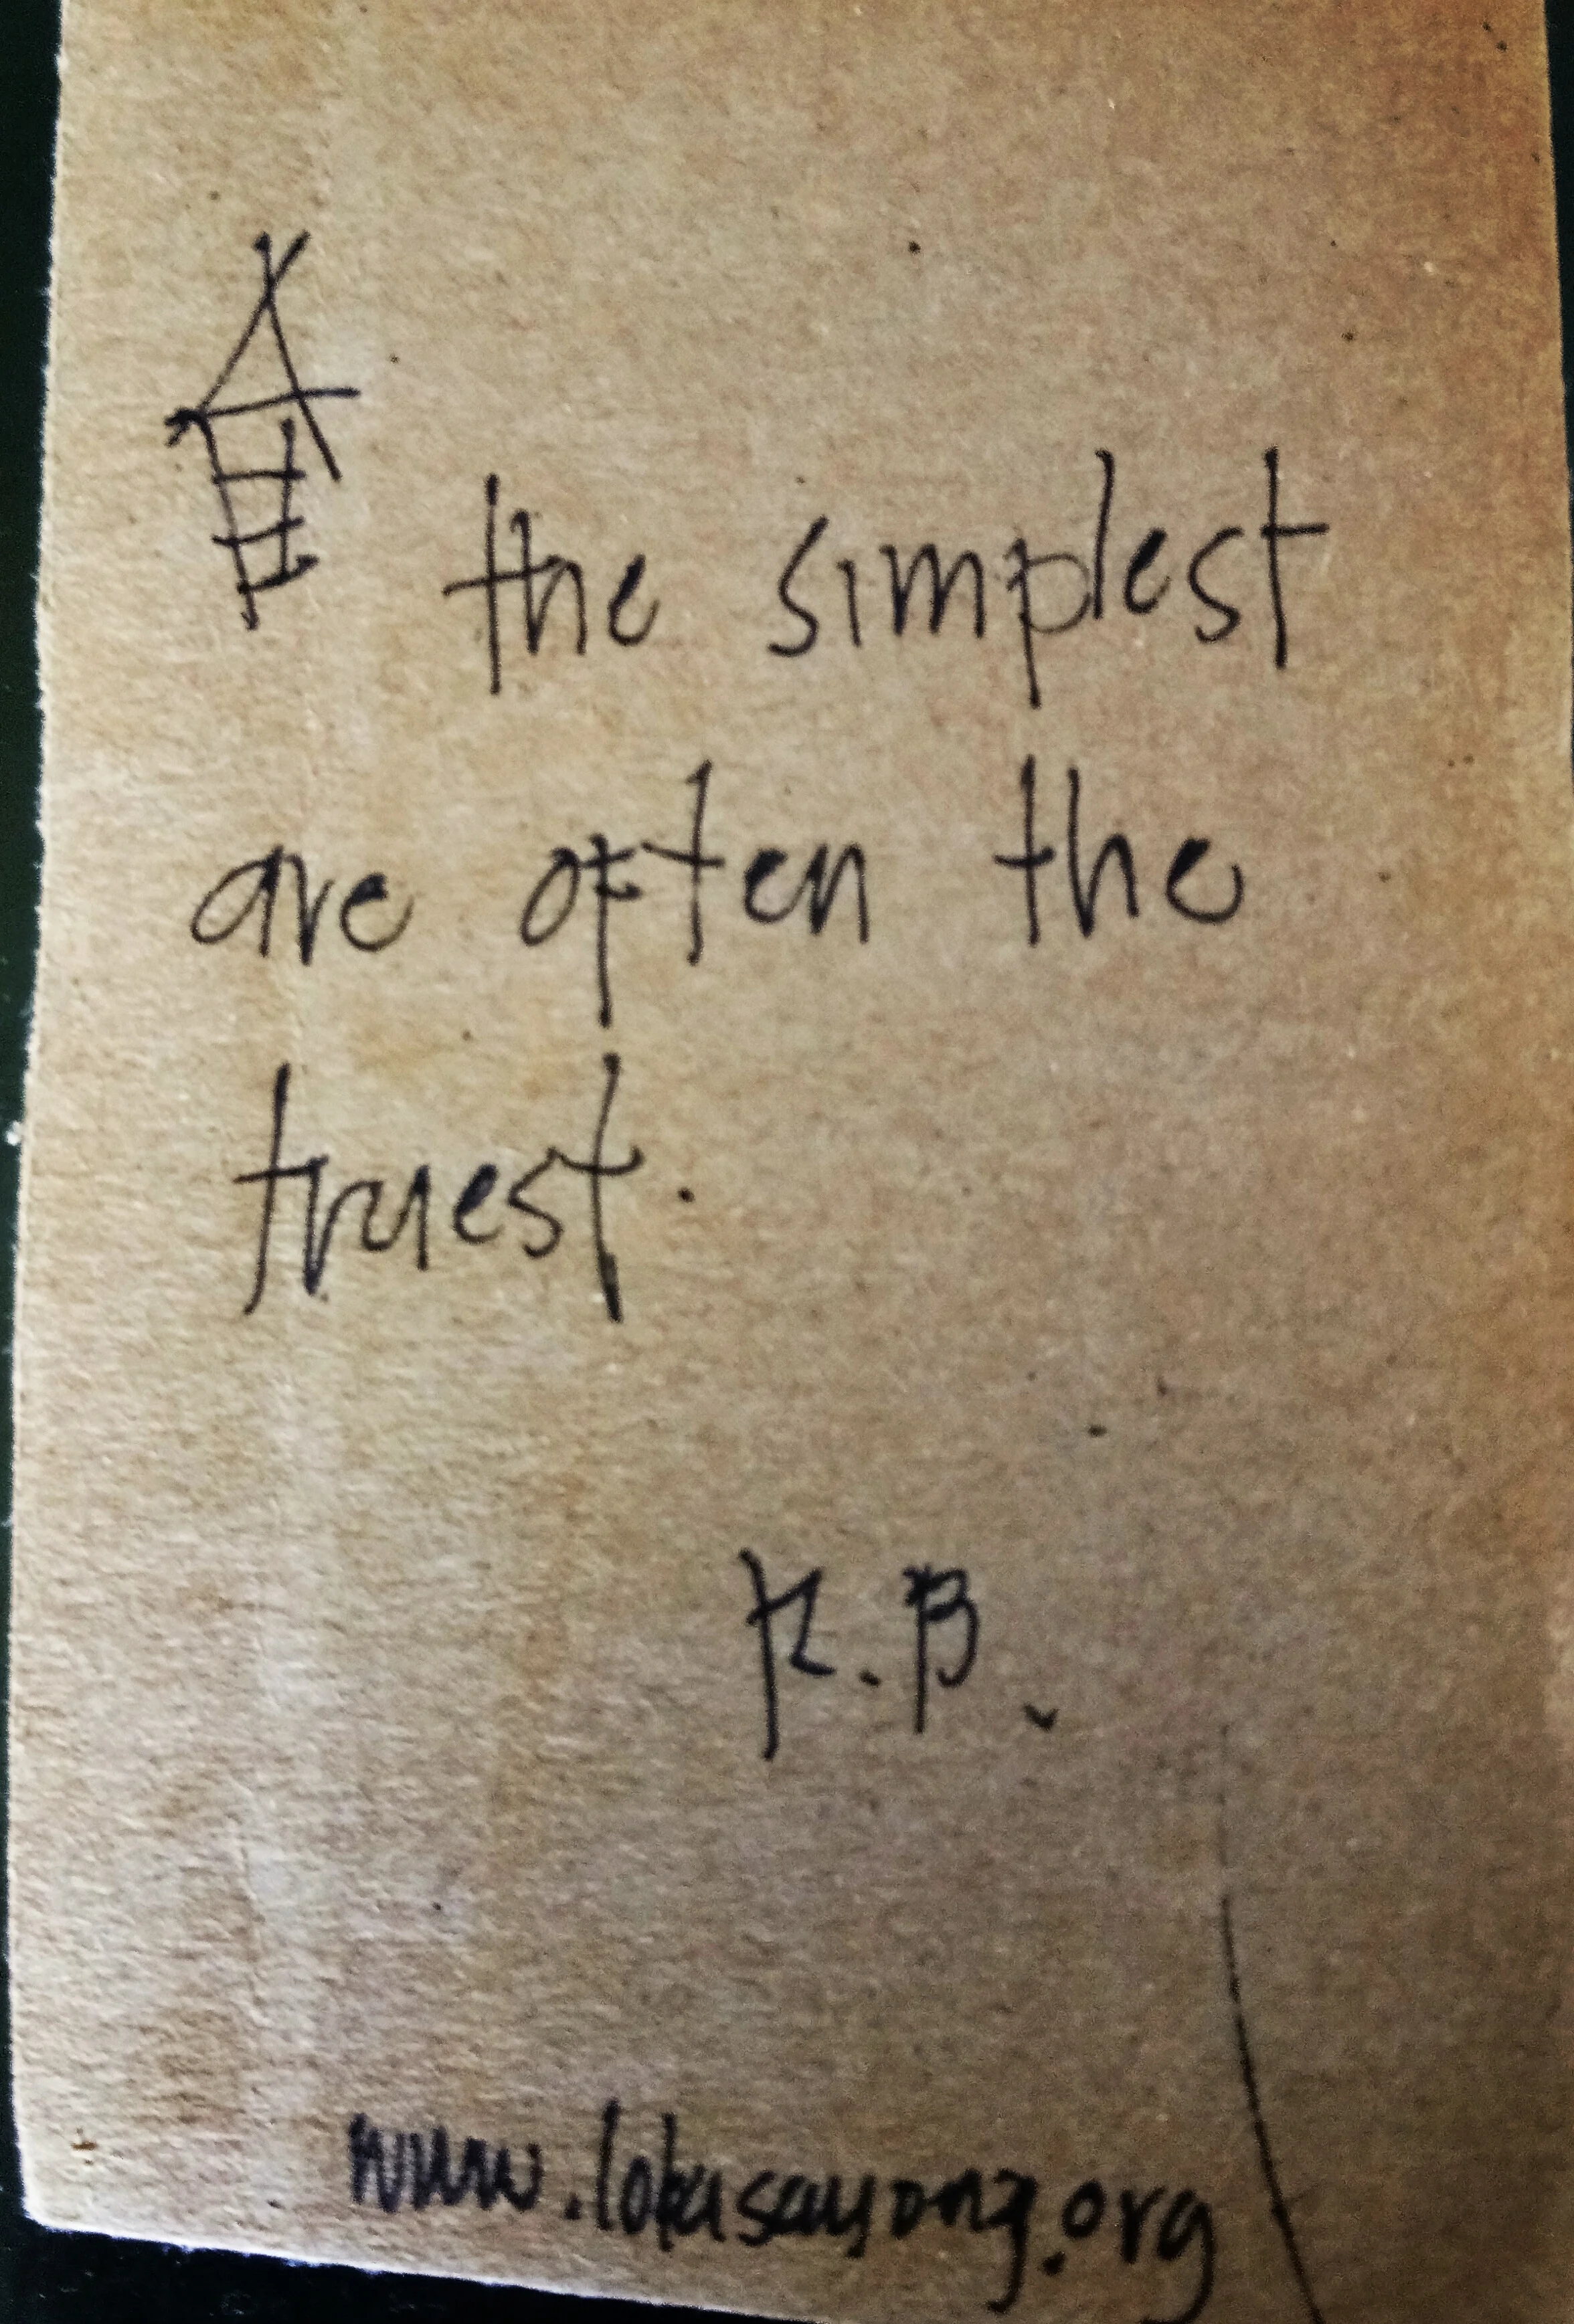 the simplest
are often the
truest.
K.B.
www.lokasayong.org